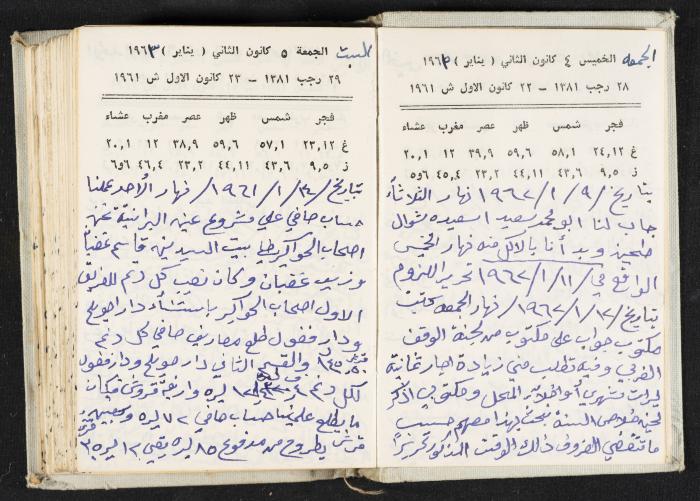 الجمعه
الخميس ٤ كانون الثاني ( يناير ) ١٩٦٢
٢٨ رجب ١٣٨١ – ٢٢ كانون الاول ش ١٩٦١
فجر شمس ظهر عصر مغرب عشاء
غ ٢٤,١٢ ٥٨,١ ٥٩,٦ ٣٩,٩ ١٢ ٢٠,١
ز ٩,٥ ٤٣,٦ ٤٤,١١ ٢٣,٢ ٤٥,٤ ٥و٦
بتاريخ /٩/ ١/ ١٩٦٢ نهار الثلاثاء
جاب لنا ابو محمد سعيد اسعيده شوال
طحين وبدأنا بالاكل منه نهار الخميس
الواقع في /١١/ ١/ ١٩٦٢ تحرير اللزوم
بتاريخ /١٢/ ١/ ١٩٦٢ نهار الجمعه كتبت
مكتوب جواب على مكتوب من لجنة الوقف
الغربي وفيه تطلب مني زيادة اجار ثمانية
ليرات شهري أو اخلاء المحل ومكتوبي اذكر
لحين خلاص السنة نبحث بهذا معهم حسب
ما تقتضي الظروف ذلك الوقت المذكور تحريراً
السبت
الجمعة ٥ كانون الثاني ( يناير ) ١٩٦٣
٢٩ رجب ١٣٨١ – ٢٣ كانون الاول ش ١٩٦١
فجر شمس ظهر عصر مغرب عشاء
غ ٢٣,١٢ ٥٧,١ ٥٩,٦ ٣٨,٩ ١٢ ٢٠,١
ز ٩,٥ ٤٣,٦ ٤٤,١١ ٢٣,٢ ٤٦,٤ ٦و٦
بتاريخ / ١/ ١٩٦١/ نهار الأحد عملنا
حساب صافي على مشروع عين البرانية نحن
اصحاب الحواكير بيت السيد بن قاسم غضبان
وزيب غضبان وكان نصب كل دنم للفريق
الاول اصحاب الحواكير باستثناء دار صويلح
ودار فغول طلع مصاريف صافي كل دنم
والقسم الثاني دار صويلح ودار فغول
لكل دنم ليره واربعة قروش فكان
ما يطلع علينا حساب صافي ٧٢ ليره و
قرش يطروح من مدفوع ٨٥ ليره يبقى ١٢ ليره